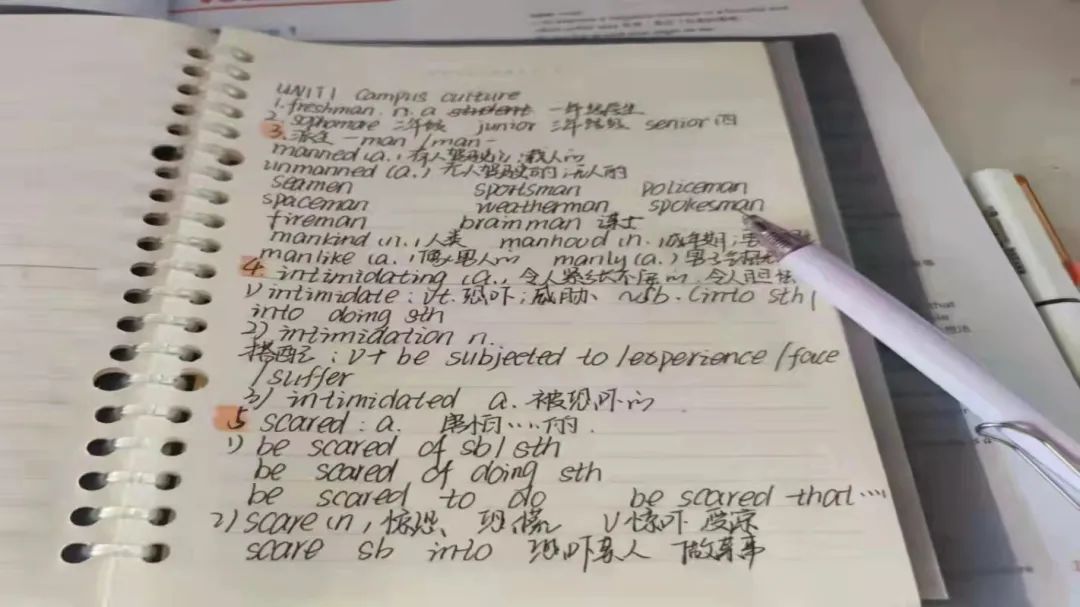 UNIT1 campus culture
1. freshman. n. a student 一年级学生
2. sophomore 二年级 junior 三年级 senior 四
3. 派生 -man / man-
manned (a.) 有人驾驶的; 载人的
unmanned (a.) 无人驾驶的; 无人的
seamen sportsman policeman
spaceman weatherman spokesman
fireman brainman 谋士
mankind (n.) 人类 manhood (n.) 成年期; 男
manlike (a.) 像男人的 manly (a.) 男子
4. intimidating (a.) 令人紧张不安的. 令人胆怯
1) intimidate: vt. 恐吓; 威胁 ~sb. (into sth /
into doing sth
2) intimidation n.
搭配: v + be subjected to /experience /face
/suffer
3) intimidated a. 被恐吓的
5 scared: a. 害怕……的.
1) be scared of sb / sth
be scared of doing sth
be scared to do be scared that …
2) scare (n, 惊恐、恐慌 v 惊吓 受惊
scare sb into 恐吓某人 做某事
that